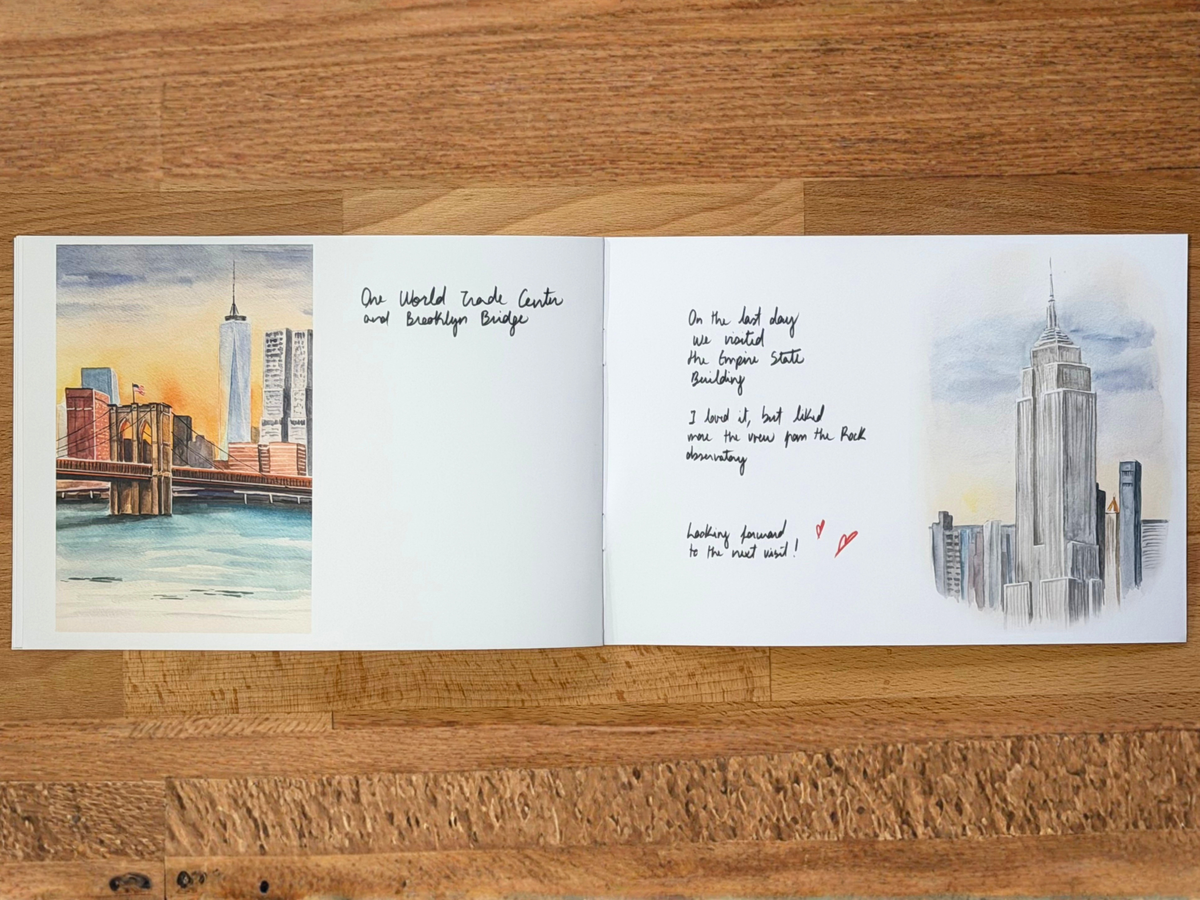 One World Trade Center
and Brooklyn Bridge
On the last day
we visited
the Empire State
Building
I loved it, but liked
more the view from the Rock
observatory
Looking forward
to the next visit!